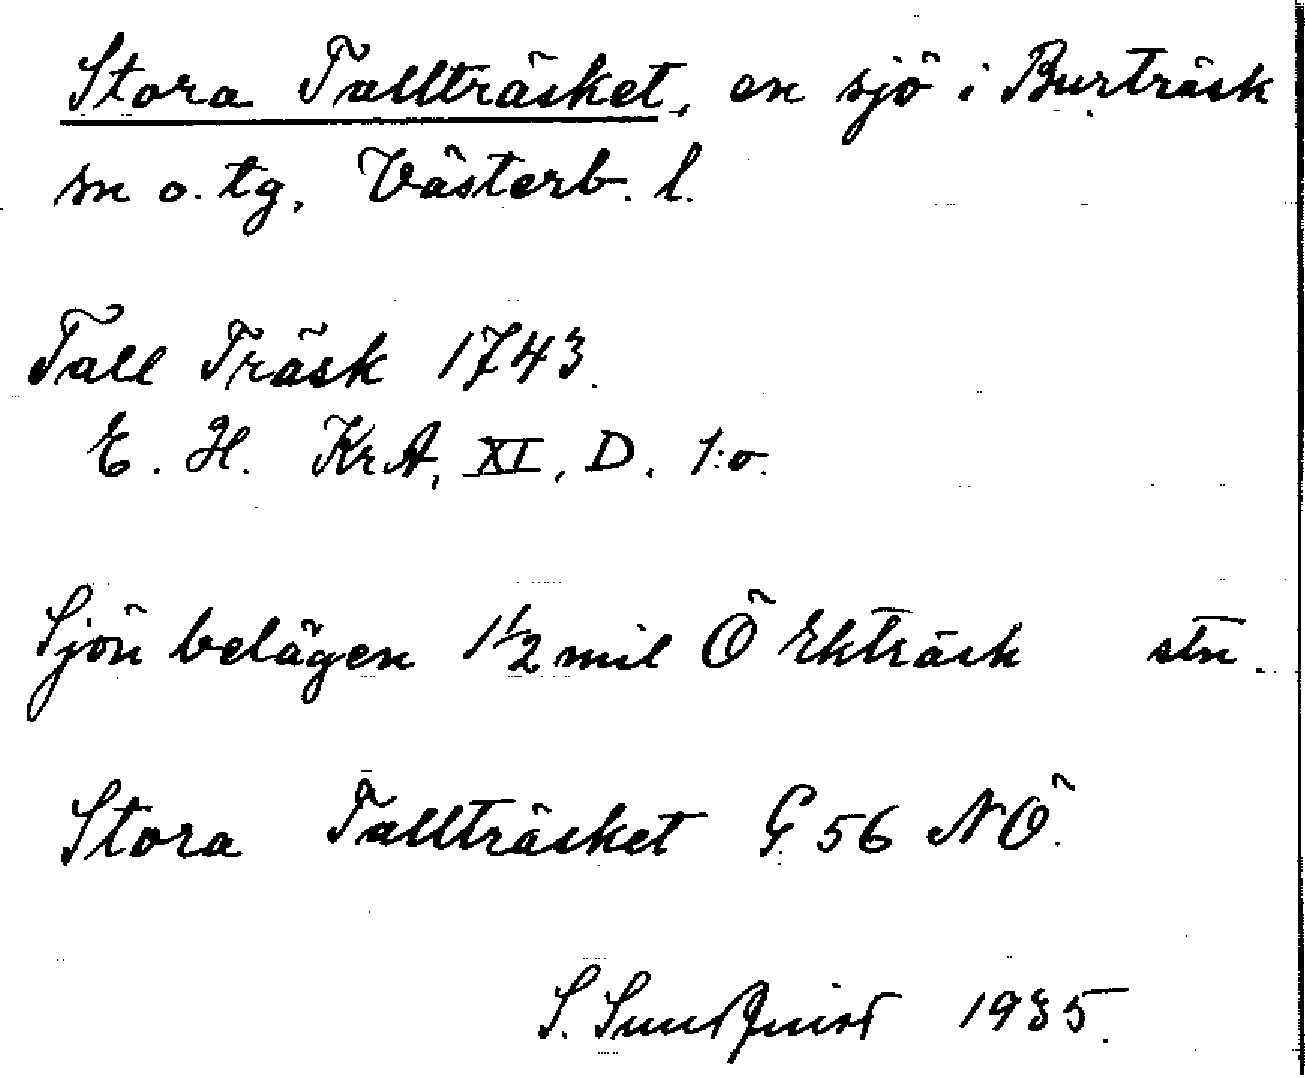 Stora Tallträsket, en sjö i Burträsk
sn o. tg, Västerb. l.
Tall Träsk 1743.
E. H. KrA, XI, D. 1:o.
Sjön belägen 1 1/2 mil Ö Ekträsk stn.
Stora Tallträsket G 56 NÖ.
S. Sundquist 1935.